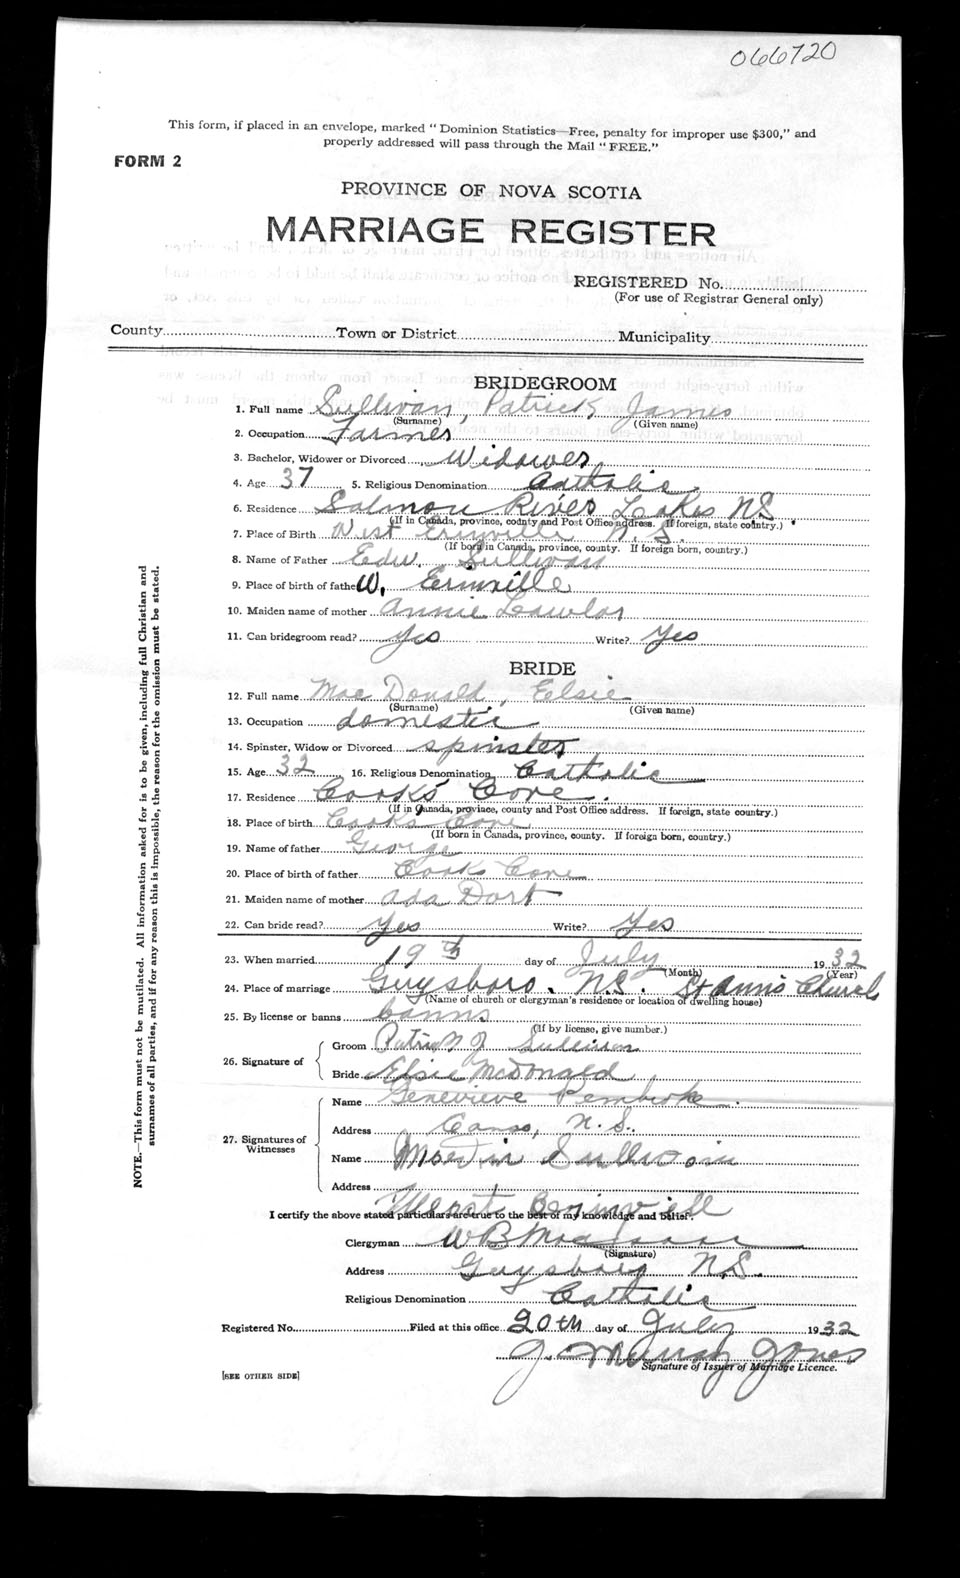 066720
This form, if placed in an envelope, marked " Dominion Statistics—Free, penalty for improper use $300," and
properly addressed will pass through the Mail " FREE."
FORM 2
PROVINCE OF NOVA SCOTIA
MARRIAGE REGISTER
REGISTERED No.
(For use of Registrar General only)
County Town or District Municipality
BRIDEGROOM
1. Full name Sullivan, Patrick James
(Surname) (Given name)
2. Occupation Farmer
3. Bachelor, Widower or Divorced Widower
4. Age 37 5. Religious Denomination Catholic
6. Residence Salmon River Lakes NS
(If in Canada, province, county and Post Office address. If foreign, state country.)
7. Place of Birth West Erinville N.S.
(If born in Canada, province, county. If foreign born, country.)
8. Name of Father Edw. Sullivan
9. Place of birth of father W. Erinville
10. Maiden name of mother Annie Lawlor
11. Can bridegroom read? Yes Write? Yes
BRIDE
12. Full name Mac Donald, Elsie
(Surname) (Given name)
13. Occupation domestic
14. Spinster, Widow or Divorced spinster
15. Age 32 16. Religious Denomination Catholic
17. Residence Cooks Cove.
(If in Canada, province, county and Post Office address. If foreign, state country.)
18. Place of birth Cooks Cove
(If born in Canada, province, county. If foreign born, country.)
19. Name of father George
20. Place of birth of father Cooks Cove
21. Maiden name of mother Ada Dort
22. Can bride read? Yes Write? Yes
23. When married 19th day of July 1932
(Month) (Year)
24. Place of marriage Guysboro. N.S. St Ann's Church
(Name of church or clergyman's residence or location of dwelling house)
25. By license or banns banns
(If by license, give number.)
26. Signature of
Groom Patrick J Sullivan
Bride Elsie McDonald
27. Signatures of Witnesses
Name Genevieve Pembroke.
Address Canso, N.S.
Name Martin Sullivan
Address West
I certify the above stated particulars are true to the best of my knowledge and belief.
Clergyman W B MacIsaac
(Signature)
Address Guysboro N.S.
Religious Denomination Catholic
Registered No. Filed at this office 20th day of July 1932
J. Murray Jones
Signature of Issuer of Marriage Licence.
[SEE OTHER SIDE]
NOTE.—This form must not be mutilated. All information asked for is to be given, including full Christian and
surnames of all parties, and if for any reason this is impossible, the reason for the omission must be stated.